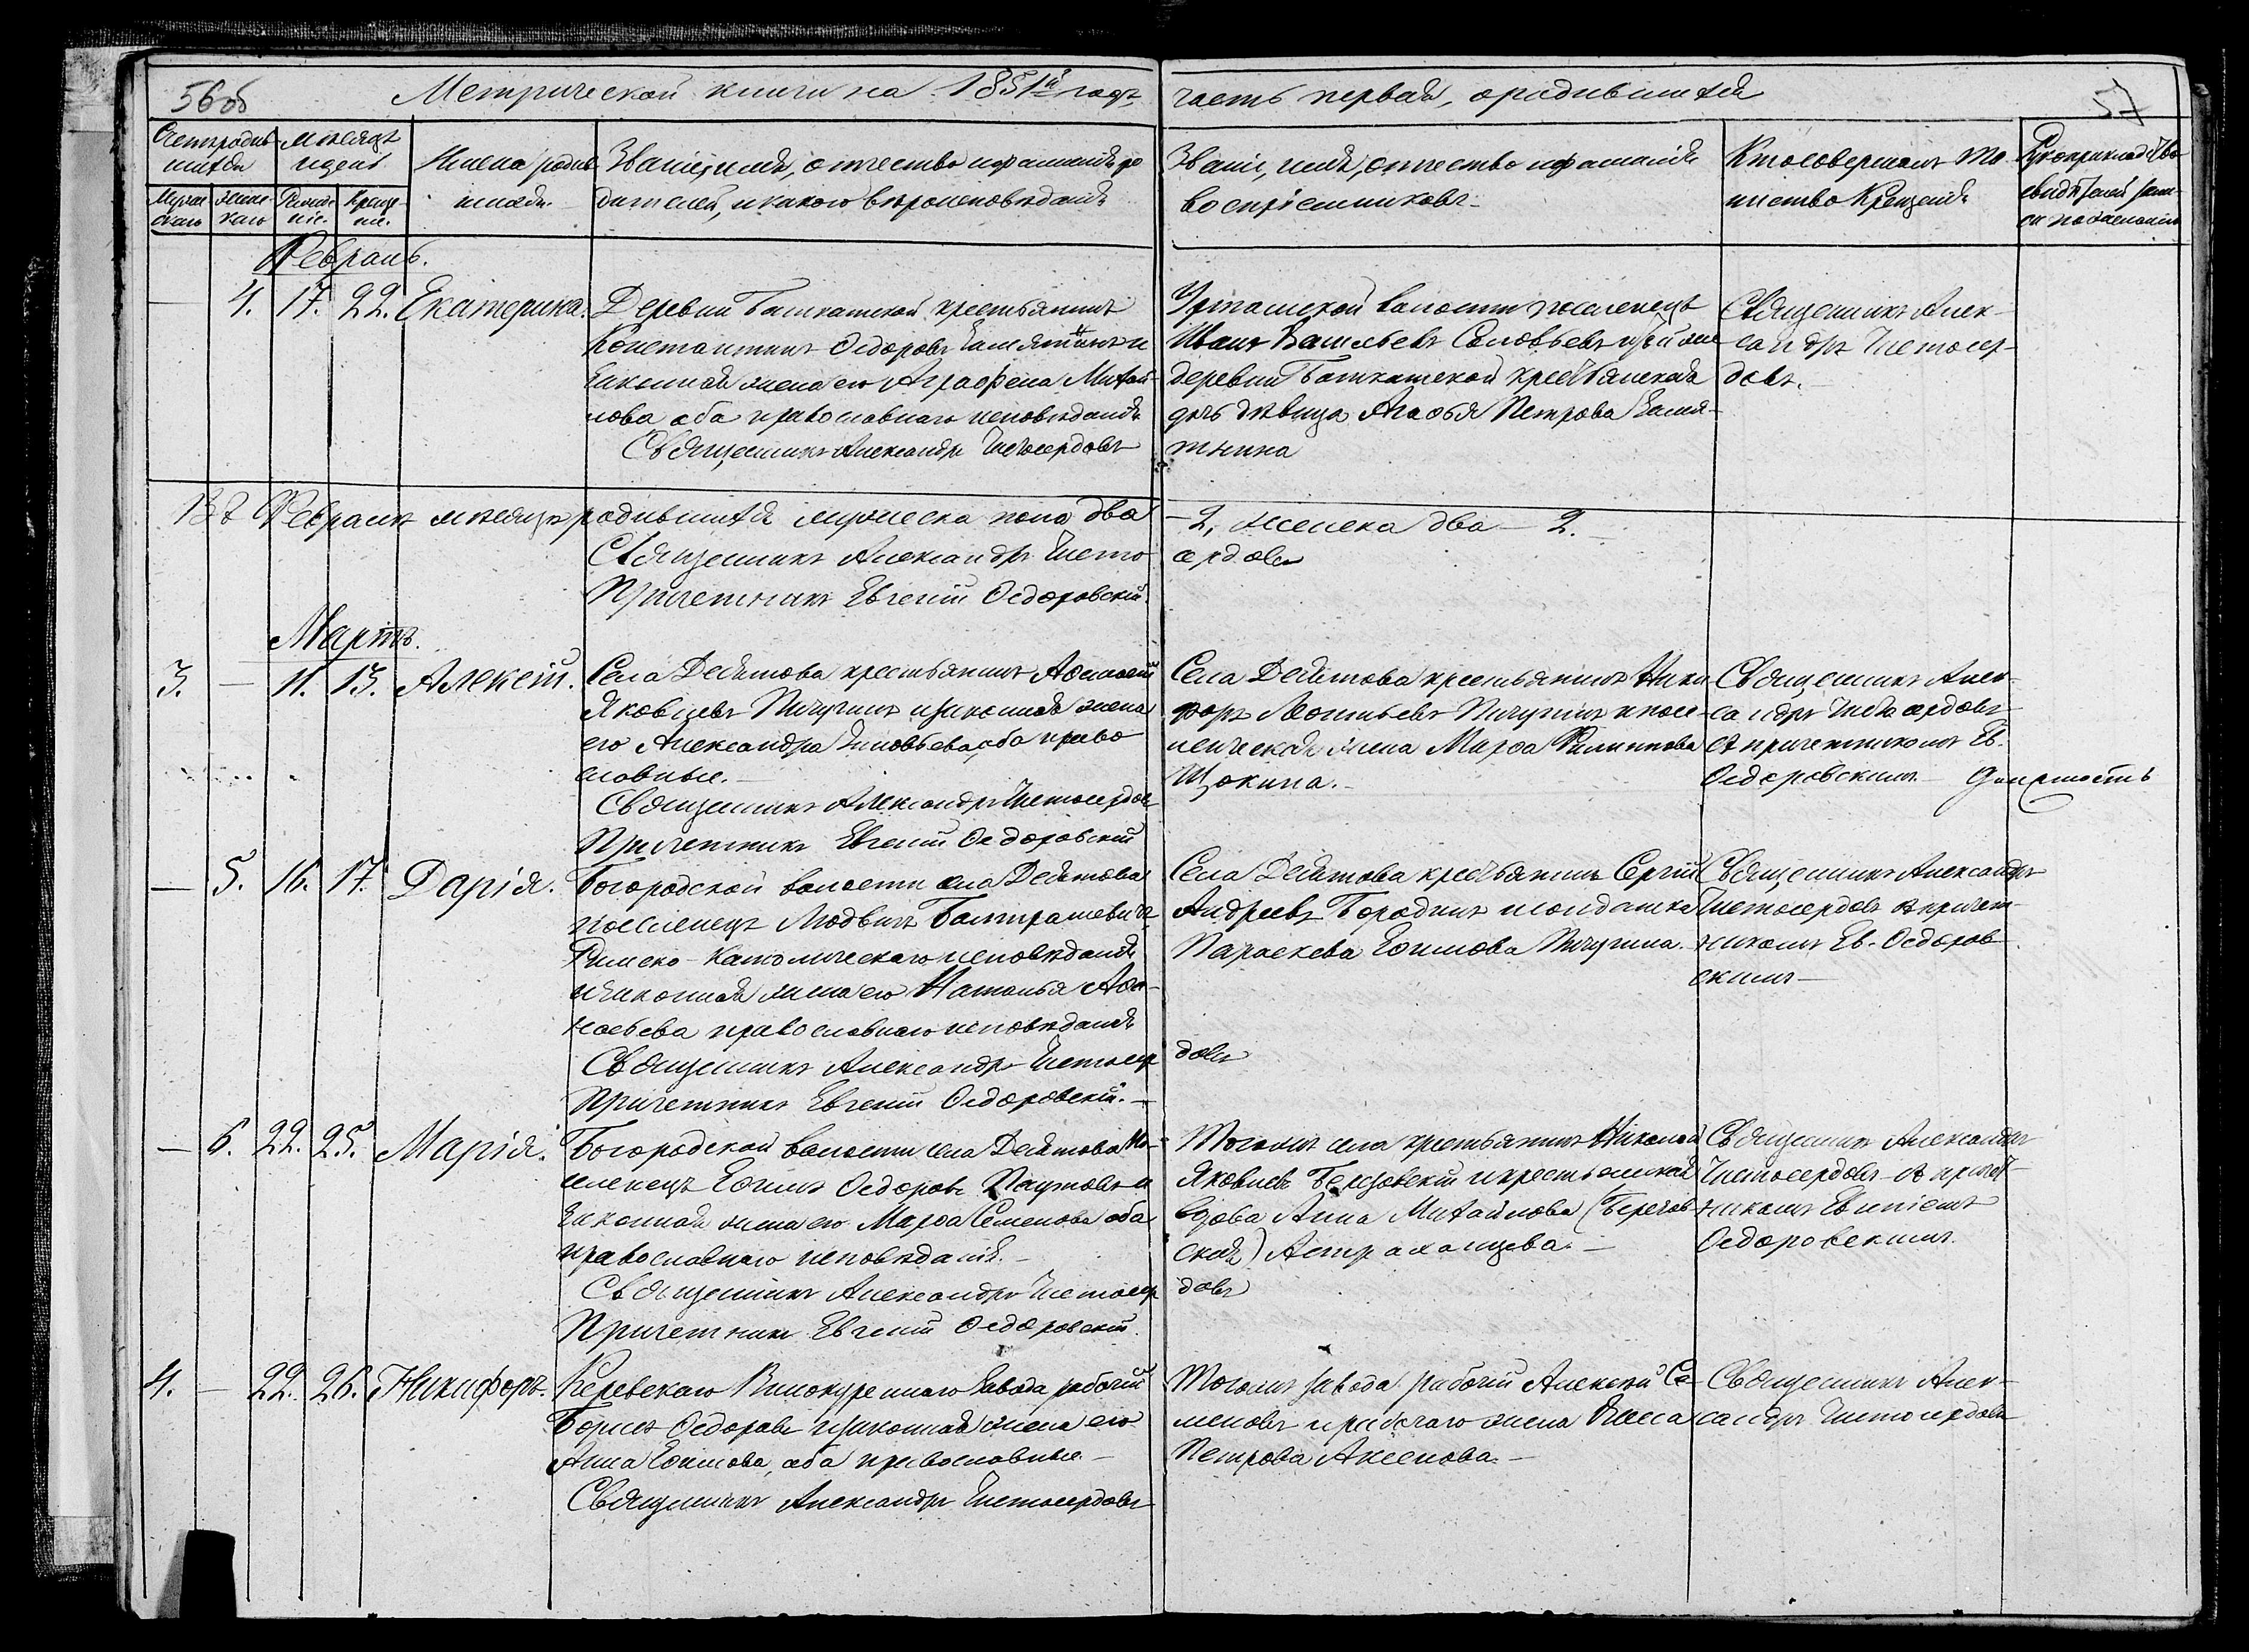 56об
Метрической книги на 1851й годъ
часть первая, о родившихся
57
Счетъ родив-
шихся
Месяцъ
и день
Имена родив-
шихся
Званіе, имя, отчество и фамилія ро-
дителей, и какого вероисповеданія
Мужес-
каго
Женс-
каго
Рожде-
ніе.
Креще-
ніе.
Званіе, имя, отчество и фамилія
воспріемниковъ.
Кто совершалъ та-
инство Крещенія
Рукоприкладство
свидетелей запи-
си по желанію
Февраль.
— 4. 17. 22. Екатерина.
Деревни Башкатской крестьянинъ
Константинъ Федоровъ и
законная жена его Аграфена Михай-
лова оба православнаго исповеданія
Священникъ Александръ Чистосердовъ
волости поселенецъ
Иванъ Васильевъ Соловьевъ и
деревни крестьянская
дочь девица Агафья Петрова Замя-
тнина
Священникъ Алек-
сандръ Чистосер-
довъ.
Въ Феврале месяце родившихся мужеска пола два
— 2, женска два — 2.
Священникъ Александръ Чисто
сердовъ
Причетникъ Евгеній Федоровскій.
Мартъ.
3. — 11. 13. Алексій.
Села Девятова крестьянинъ
Яковлевъ Пичугинъ и законная жена
его Александра Зиновьева, оба право-
славные.
Священникъ Александръ Чистосердов
Причетникъ Евгеній Федоровскій
Села Девятова крестьянинъ Ники-
форъ Леонтьевъ Пичугинъ и посе-
ленческая жена Марфа Филиппова
Щокина.
Священникъ Алек-
сандръ Чистосердовъ
съ причетникомъ Ев.
Федоровскимъ
— 5. 16. 17. Дарія.
Богородской волости села Девятова
поселенецъ Людвигъ
Римско-Католическаго исповеданія
и законная жена его Наталья Афа-
насьева православнаго исповеданія
Священникъ Александръ Чистосер
довъ
Причетникъ Евгеній Федоровскій.
Села Девятова крестьянинъ Сергій
Андреевъ Бородинъ и солдатка
Параскева Ефимова Пичугина.
Священникъ Александръ
Чистосердовъ съ причет-
никомъ Ев. Федоров-
скимъ
— 6. 22. 25. Марія.
Богородской волости села Девятова по-
селенецъ Ефимъ Федоровъ Паутовъ и
законная жена его Марфа Семенова оба
православнаго исповеданія.
Священникъ Александръ Чистосер
довъ
Причетникъ Евгеній Федоровскій.
Тогожъ села крестьянинъ Николай
Яковлевъ и крестьянская
вдова Анна Михайлова
ская) Астраханцева.
Священникъ Александръ
Чистосердовъ съ причет-
никомъ Евгеніемъ
Федоровскимъ.
4. — 22. 26. Никифоръ.
Керевскаго Винокуреннаго Завода рабочій
Борисъ Федоровъ и законная жена его
Анна Ефимова, оба православные
Священникъ Александръ Чистосердовъ
Тогожъ завода рабочій Алексей Се-
меновъ и рабочаго жена
Петрова Аксенова.
Священникъ Алек-
сандръ Чистосердовъ